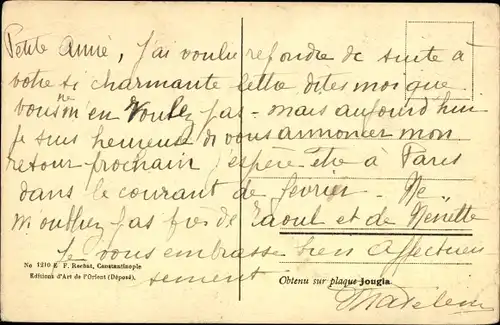 Petite Amie, j'ai voulu repondre de suite à
votre si charmante lettre dites moi que
vous ne m'en voulez pas - mais aujourd'hui
je suis heureuse de vous annoncer mon
retour prochain j'espère être à Paris
dans le courant de fevrier. Ne
m'oubliez pas près de Raoul et de Nénette
Je vous embrasse bien affectueu
sement
No 1210 E. F. Rochat, Constantinople
Editions d'Art de l'Orient (Déposé).
Obtenu sur plaque Jougla.